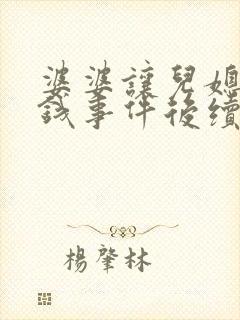 婆婆讓兒媳
錢事件後續
楊肇林